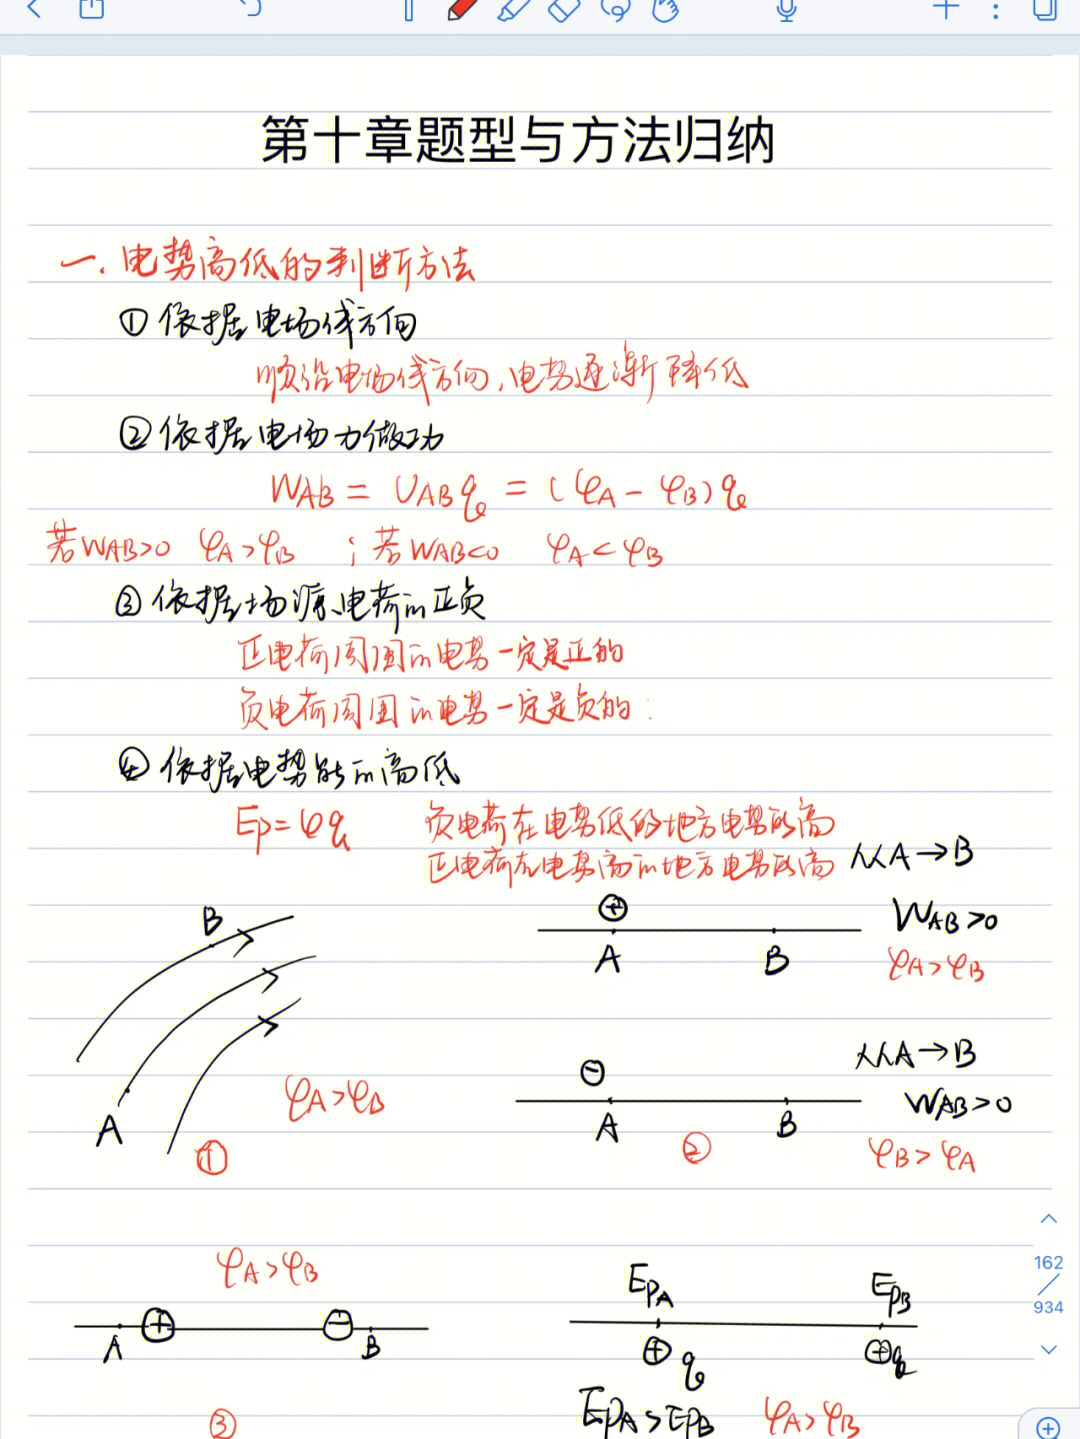 第十章题型与方法归纳
一.电势高低的判断方法
①依据电场线方向
顺沿电场线方向,电势逐渐降低
②依据电场力做功
WAB = UABq = (φA - φB)q
若WAB>0 φA>φB ;若WAB<0 φA<φB
③依据场源电荷的正负
正电荷周围的电势一定是正的
负电荷周围的电势一定是负的:
④依据电势能的高低
Ep=φq 负电荷在电势低的地方电势能高
正电荷在电势高的地方电势能高
从A→B
B
⊕
WAB>0
A B
φA>φB
从A→B
⊖
WAB>0
φA>φB
A
A B
①
②
φB>φA
φA>φB
EPA EPB
⊕ ⊖
A B
⊕q ⊕q
③
EPA>EPB φA>φB
162
934